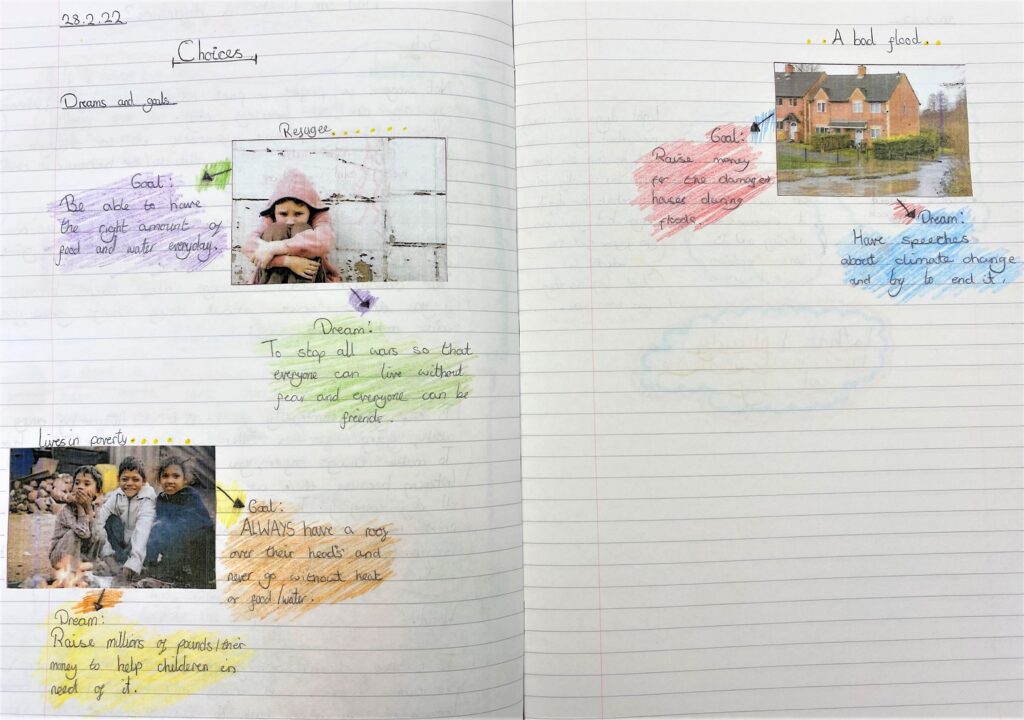 28.2.22
Choices
Dreams and goals
Refugee.....
Goal:
Be able to have
the right amount of
food and water everyday.
Dream:
To stop all wars so that
everyone can live without
fear and everyone can be
friends.
Lives in poverty.....
Goal:
ALWAYS have a roof
over their heads and
never go without heat
or food/water.
Dream:
Raise millions of pounds/their
money to help childeren in
need of it.
..A bad flood..
Goal:
Raise money
for the damaged
houses during
floods
Dream:
Have speeches
about climate change
and try to end it.